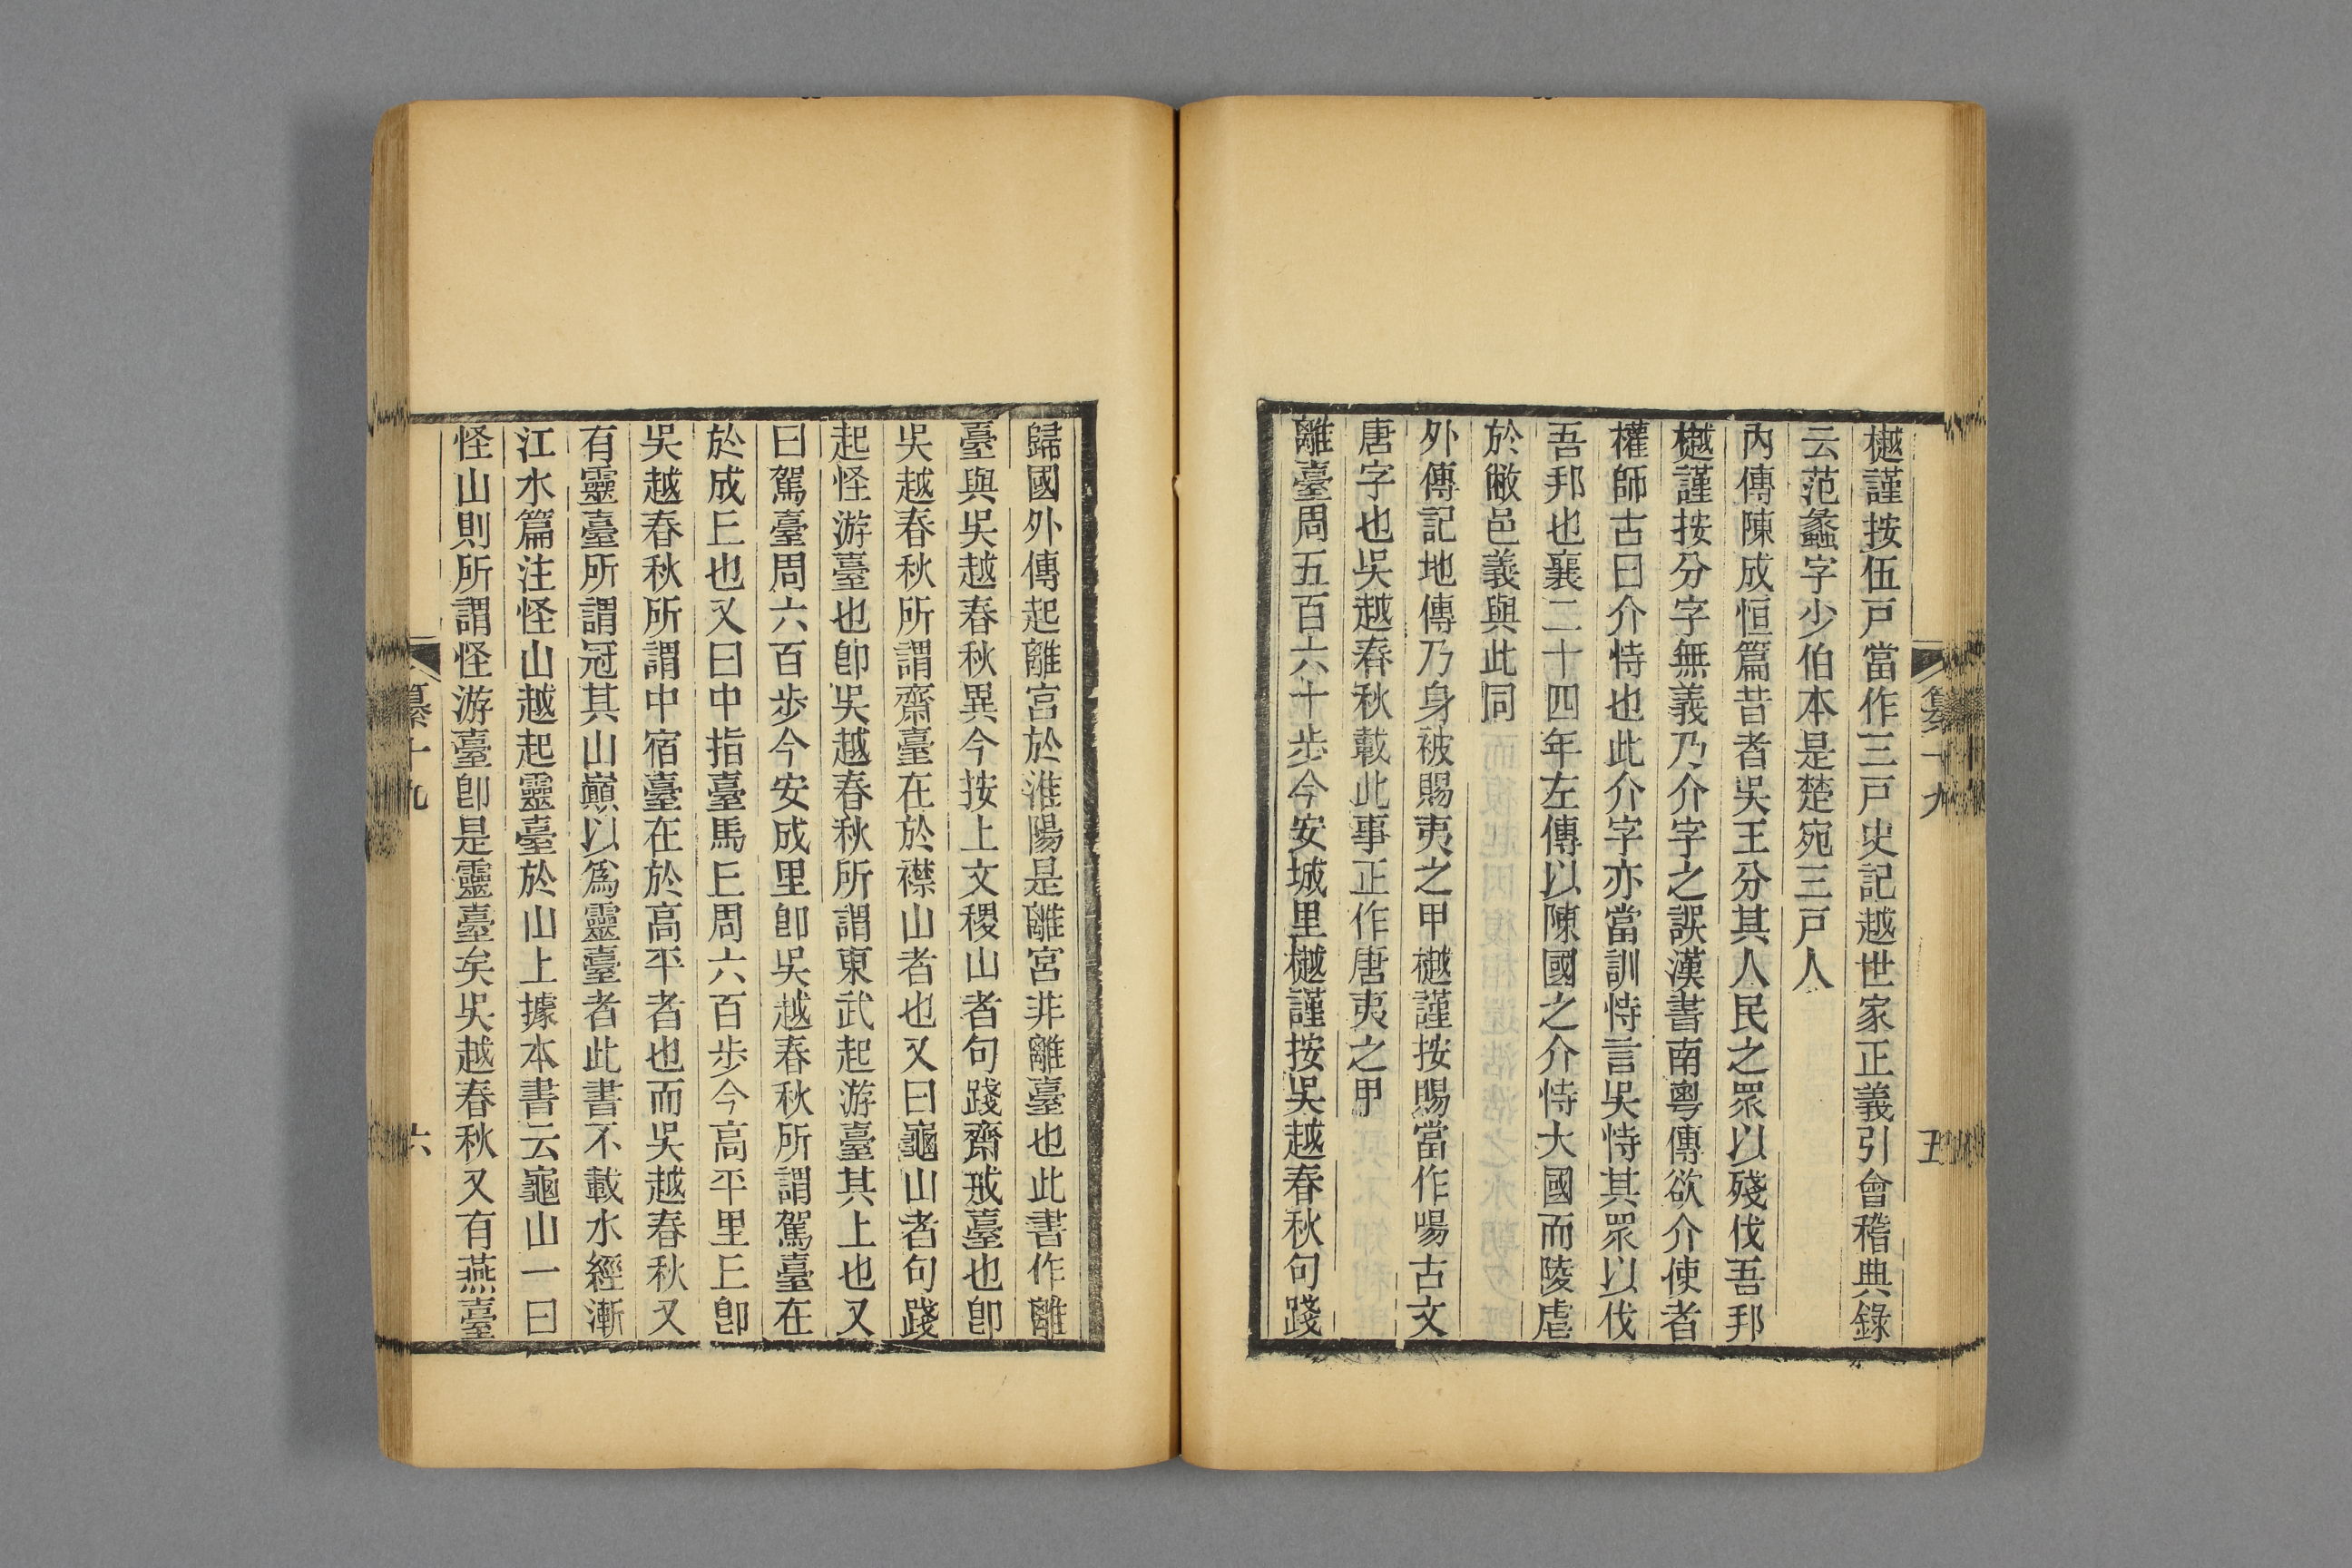 樾謹按伍戸當作三戸史記越世家正義引會稽典錄
云范蠡字少伯本是楚宛三戸人
內傳陳成恒篇昔者吳王分其人民之眾以殘伐吾邦
樾謹按分字無義乃介字之誤漢書南粵傳欲介使者
權師古曰介恃也此介字亦當訓恃言吳恃其眾以伐
吾邦也襄二十四年左傳以陳國之介恃大國而陵虐
於敝邑義與此同
外傳記地傳乃身被賜夷之甲樾謹按賜當作啺古文
唐字也吳越春秋載此事正作唐夷之甲
離臺周五百六十步今安城里樾謹按吳越春秋句踐
歸國外傳起離宮於淮陽是離宮非離臺也此書作離
臺與吳越春秋異今按上文稷山者句踐齋戒臺也卽
吳越春秋所謂齋臺在於襟山者也又曰龜山者句踐
起怪游臺也卽吳越春秋所謂東武起游臺其上也又
曰駕臺周六百步今安成里卽吳越春秋所謂駕臺在
於成𠀉也又曰中指臺馬𠀉周六百步今高平里𠀉卽
吳越春秋所謂中宿臺在於高平者也而吳越春秋又
有靈臺所謂冠其山巔以爲靈臺者此書不載水經漸
江水篇注怪山越起靈臺於山上據本書云龜山一曰
怪山則所謂怪游臺卽是靈臺矣吳越春秋又有燕臺
纂十九
五
纂十九
六